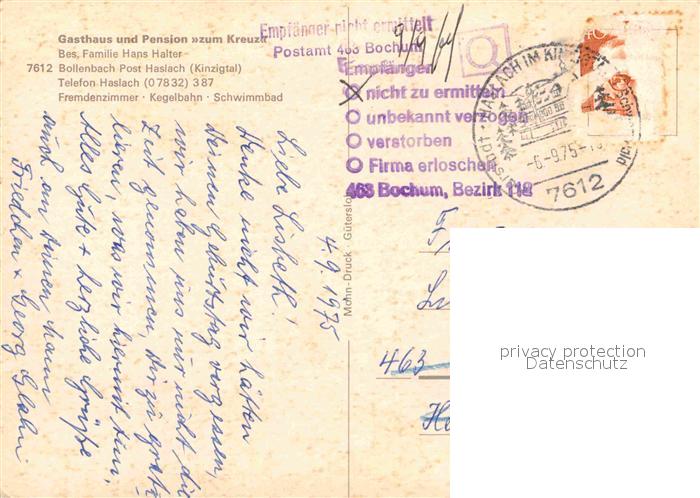 Gasthaus und Pension »zum Kreuz«
Bes. Familie Hans Halter
7612 Bollenbach Post Haslach (Kinzigtal)
Telefon Haslach (07832) 387
Fremdenzimmer · Kegelbahn · Schwimmbad
Empfänger nicht ermittelt
Postamt 463 Bochum
Empfänger
nicht zu ermitteln
unbekannt verzogen
verstorben
Firma erloschen
463 Bochum, Bezirk 112
HASLACH IM
-6.-9.75-
7612
Mohn-Druck · Gütersloh
4.9.1975
Liebe Lisbeth!
Denke nicht wir hätten
deinen Geburtstag vergessen,
wir haben uns nur nicht die
Zeit genommen, dir zu gratu
lieren, was wir hiermit tun.
Alles Gute + herzliche Grüße
auch an deinen Mann
Friedchen + Georg
463
privacy protection
Datenschutz